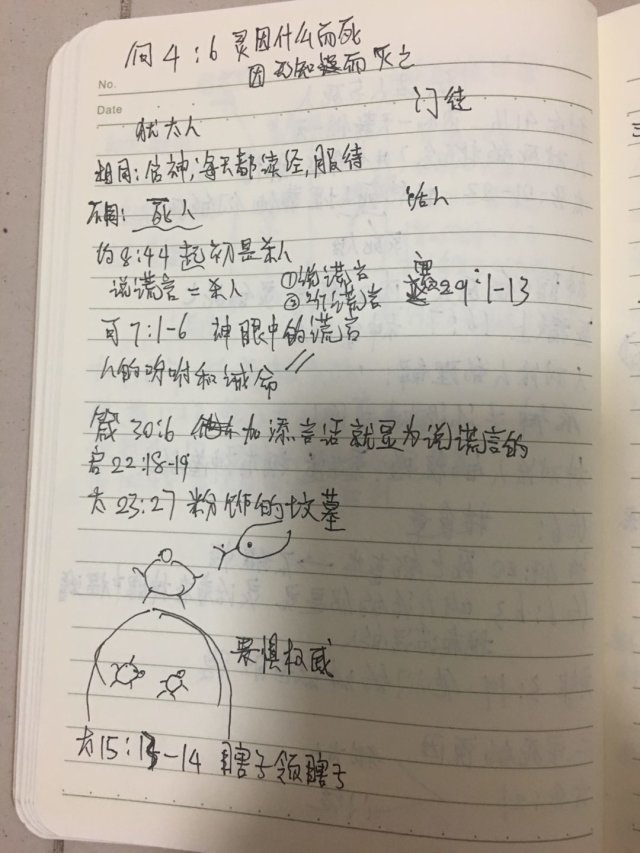 何4:6 灵因什么而死
因无知识而灭亡
No.
Date
门徒
犹太人
相同:信神,每天都读经,服侍
不同:死人
活人
约8:44 起初是杀人
说谎言=杀人
①说谎言
②听谎言
赛29:1-13
可7:1-6 神眼中的谎言
人的吩咐和诫命
箴30:6 加添言语就显为说谎言的
启22:18-19
太23:27 粉饰的坟墓
畏惧权威
太15:13-14 瞎子领瞎子